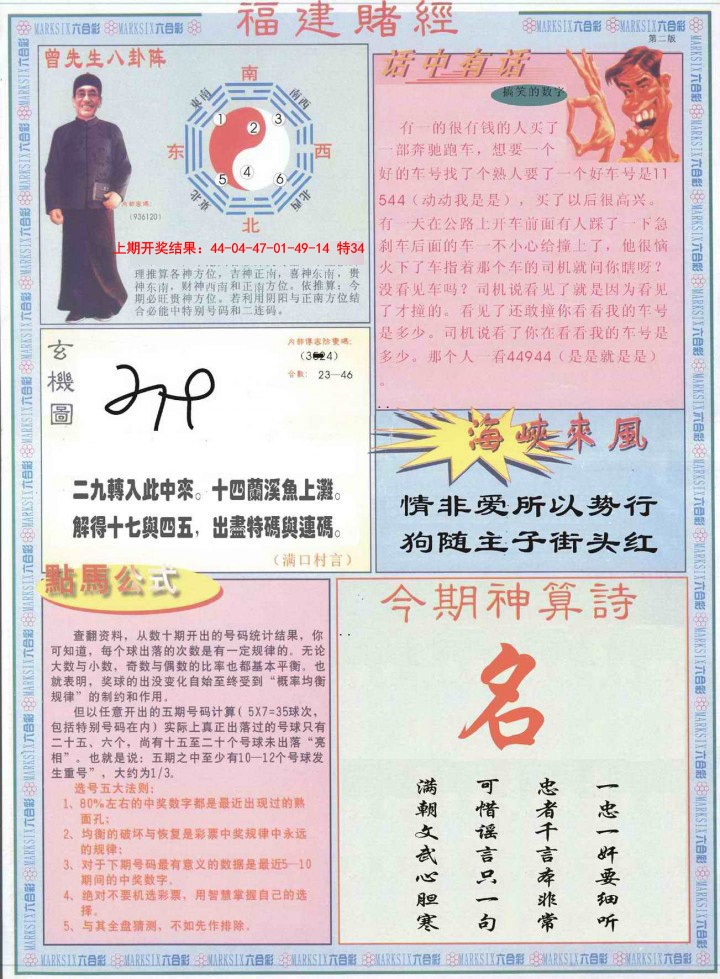 福建賭經
MARKSIX六合彩
第二版
曾先生八卦阵
南
東南
南西
①
②
③
东
西
⑤
④
⑥
東北
西北
北
内部密碼:
(936120)
上期开奖结果：44-04-47-01-49-14 特34
理推算各神方位，吉神正南，喜神东南，贵
神东南，财神西南和正南方位。依推算：今
期必旺贵神方位。若利用阴阳与正南方位结
合必能中特别号码和二连码。
话中有话
搞笑的数字
有一的很有钱的人买了
一部奔驰跑车，想要一个
好的车号找了个熟人要了一个好车号是11
544（动动我是是），买了以后很高兴。
有一天在公路上开车前面有人踩了一下急
刹车后面的车一不小心给撞上了，他很恼
火下了车指着那个车的司机就问你瞎呀？
没看见车吗？司机说看见了就是因为看见
了才撞的。看见了还敢撞你看看我的车号
是多少。司机说看了你在看看我的车号是
多少。那个人一看44944（是是就是是）
。
玄機圖
内部傳密防電碼:
合數: 23—46
二九轉入此中來。十四蘭溪魚上灘。
解得十七與四五，出盡特碼與連碼。
（满口村言）
海峽來風
情非爱所以势行
狗随主子街头红
點馬公式
查翻资料，从数十期开出的号码统计结果，你
可知道，每个球出落的次数是有一定规律的。无论
大数与小数，奇数与偶数的比率也都基本平衡。也
就表明，奖球的出没变化自始至终受到“概率均衡
规律”的制约和作用。
但以任意开出的五期号码计算（5X7=35球次，
包括特别号码在内）实际上真正出落过的号球只有
二十五、六个，尚有十五至二十个号球未出落“亮
相”。也就是说：五期之中至少有10—12个号球发
生重号”，大约为1/3。
选号五大法则：
1、80%左右的中奖数字都是最近出现过的熟
面孔；
2、均衡的破坏与恢复是彩票中奖规律中永远
的规律；
3、对于下期号码最有意义的数据是最近5—10
期间的中奖数字.
4、绝对不要机选彩票，用智慧掌握自己的选
择.
5、与其全盘猜测，不如先作排除.
今期神算詩
名
一忠一奸要细听
忠者千言奔非常
可惜谣言只一句
满朝文武心胆寒